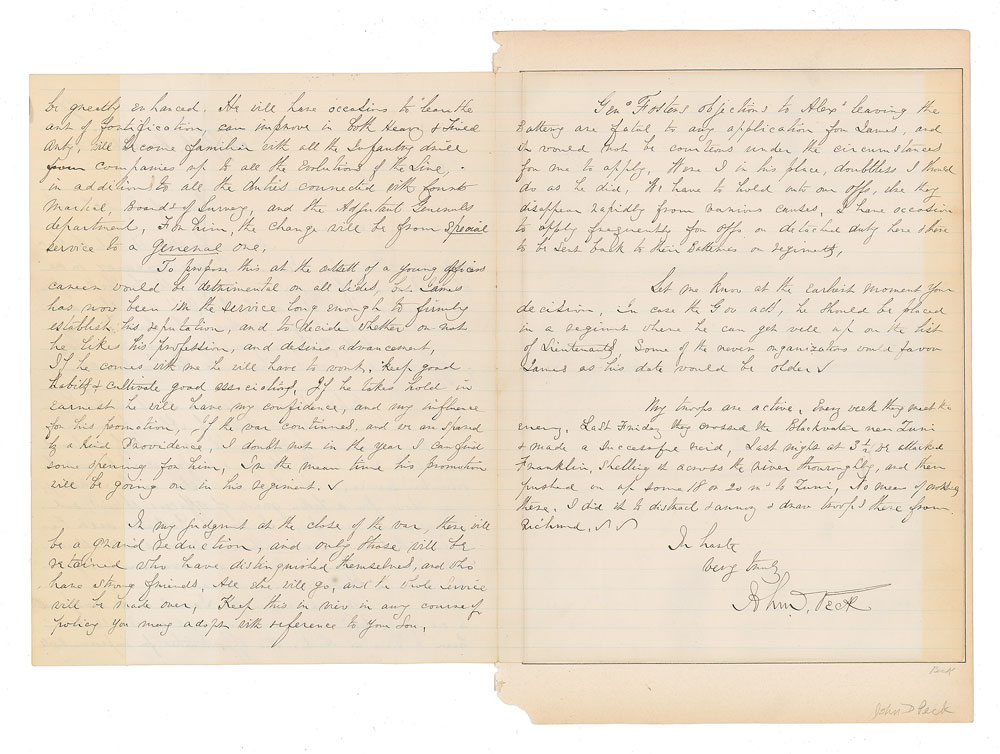 be greatly enhanced. He will have occasions to learn the
art of fortification, can improve in both Heavy & Field
Arty, will become familiar with all the Infantry drill
from companies up to all the Evolutions of the Line,
in addition to all the duties connected with Courts
Martial, Boards of Survey, and the Adjutant Generals
department. For him, the change will be from special
service to a general one.
To propose this at the outset of a young officers
career would be detrimental on all sides, but James
has now been in the service long enough to firmly
establish his reputation, and to decide whether or not
he likes his profession, and desires advancement.
If he comes with me he will have to work. Keep good
habits & cultivate good associations. If he takes hold in
earnest he will have my confidence, and my influence
for his promotion. If the war continues, and we are spared
by a kind Providence, I doubt not in the year I can find
some opening for him, In the mean time his promotion
will be going on in his regiment.
In my judgmt at the close of the war, there will
be a grand reduction, and only those will be
retained who have distinguished themselves, and who
have strong friends. All else will go, and the whole service
will be made over, Keep this in view in any course of
policy you may adopt with reference to your Son.
Genl Fosters objections to Alexr leaving the
Battery are fatal to any application for James, and
it would not be courteous under the circumstances
for me to apply. Were I in his place, doubtless I should
do as he did, We have to hold onto our offs, else they
disappear rapidly from various causes, I have occasion
to apply frequently for offs on detached duty here & there
to be sent back to their Batteries or regimts,
Let me know at the earliest moment your
decision, In case the Gov act, he should be placed
in a regimt where he can get well up on the list
of Lieutenants Some of the newer organizations would favor
James as his date would be older
My troops are active, Every week they meet the
enemy, Last Friday they crossed the Blackwater near Zuni
& made a successful raid, Last night at 3½ we attacked
Franklin, shelling it across the river thoroughly, and then
pushed on up some 18 or 20 ms to Zuni, No means of crossing
there. I did it to distract & annoy & draw troops there from
Richmd.
In haste
very truly
John J. Peck
Peck
John D Peck